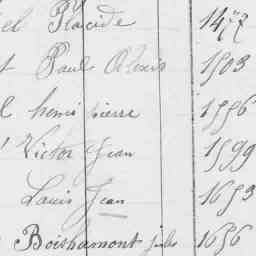 el Placide 1477
t Paul Alexis 1503
l henri pierre 1556
Victor Jean 1599
Louis Jean 1653
Boishamont jules 1656